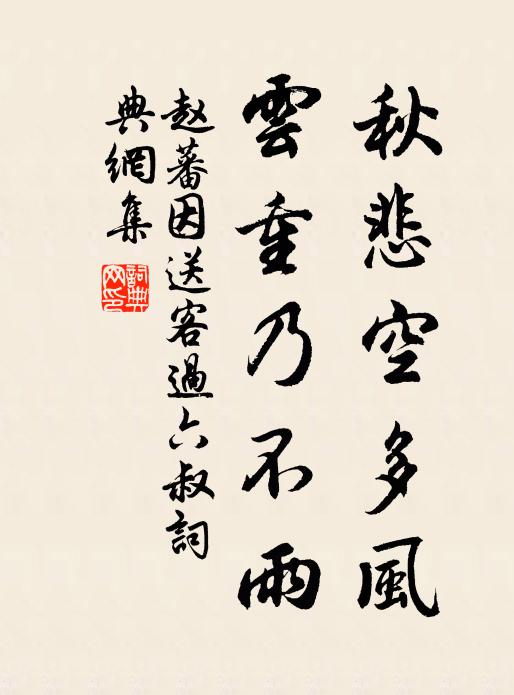 秋悲空多風
雲重乃不雨
赵蕃因送客過六叔詞
典網集
詞典网印